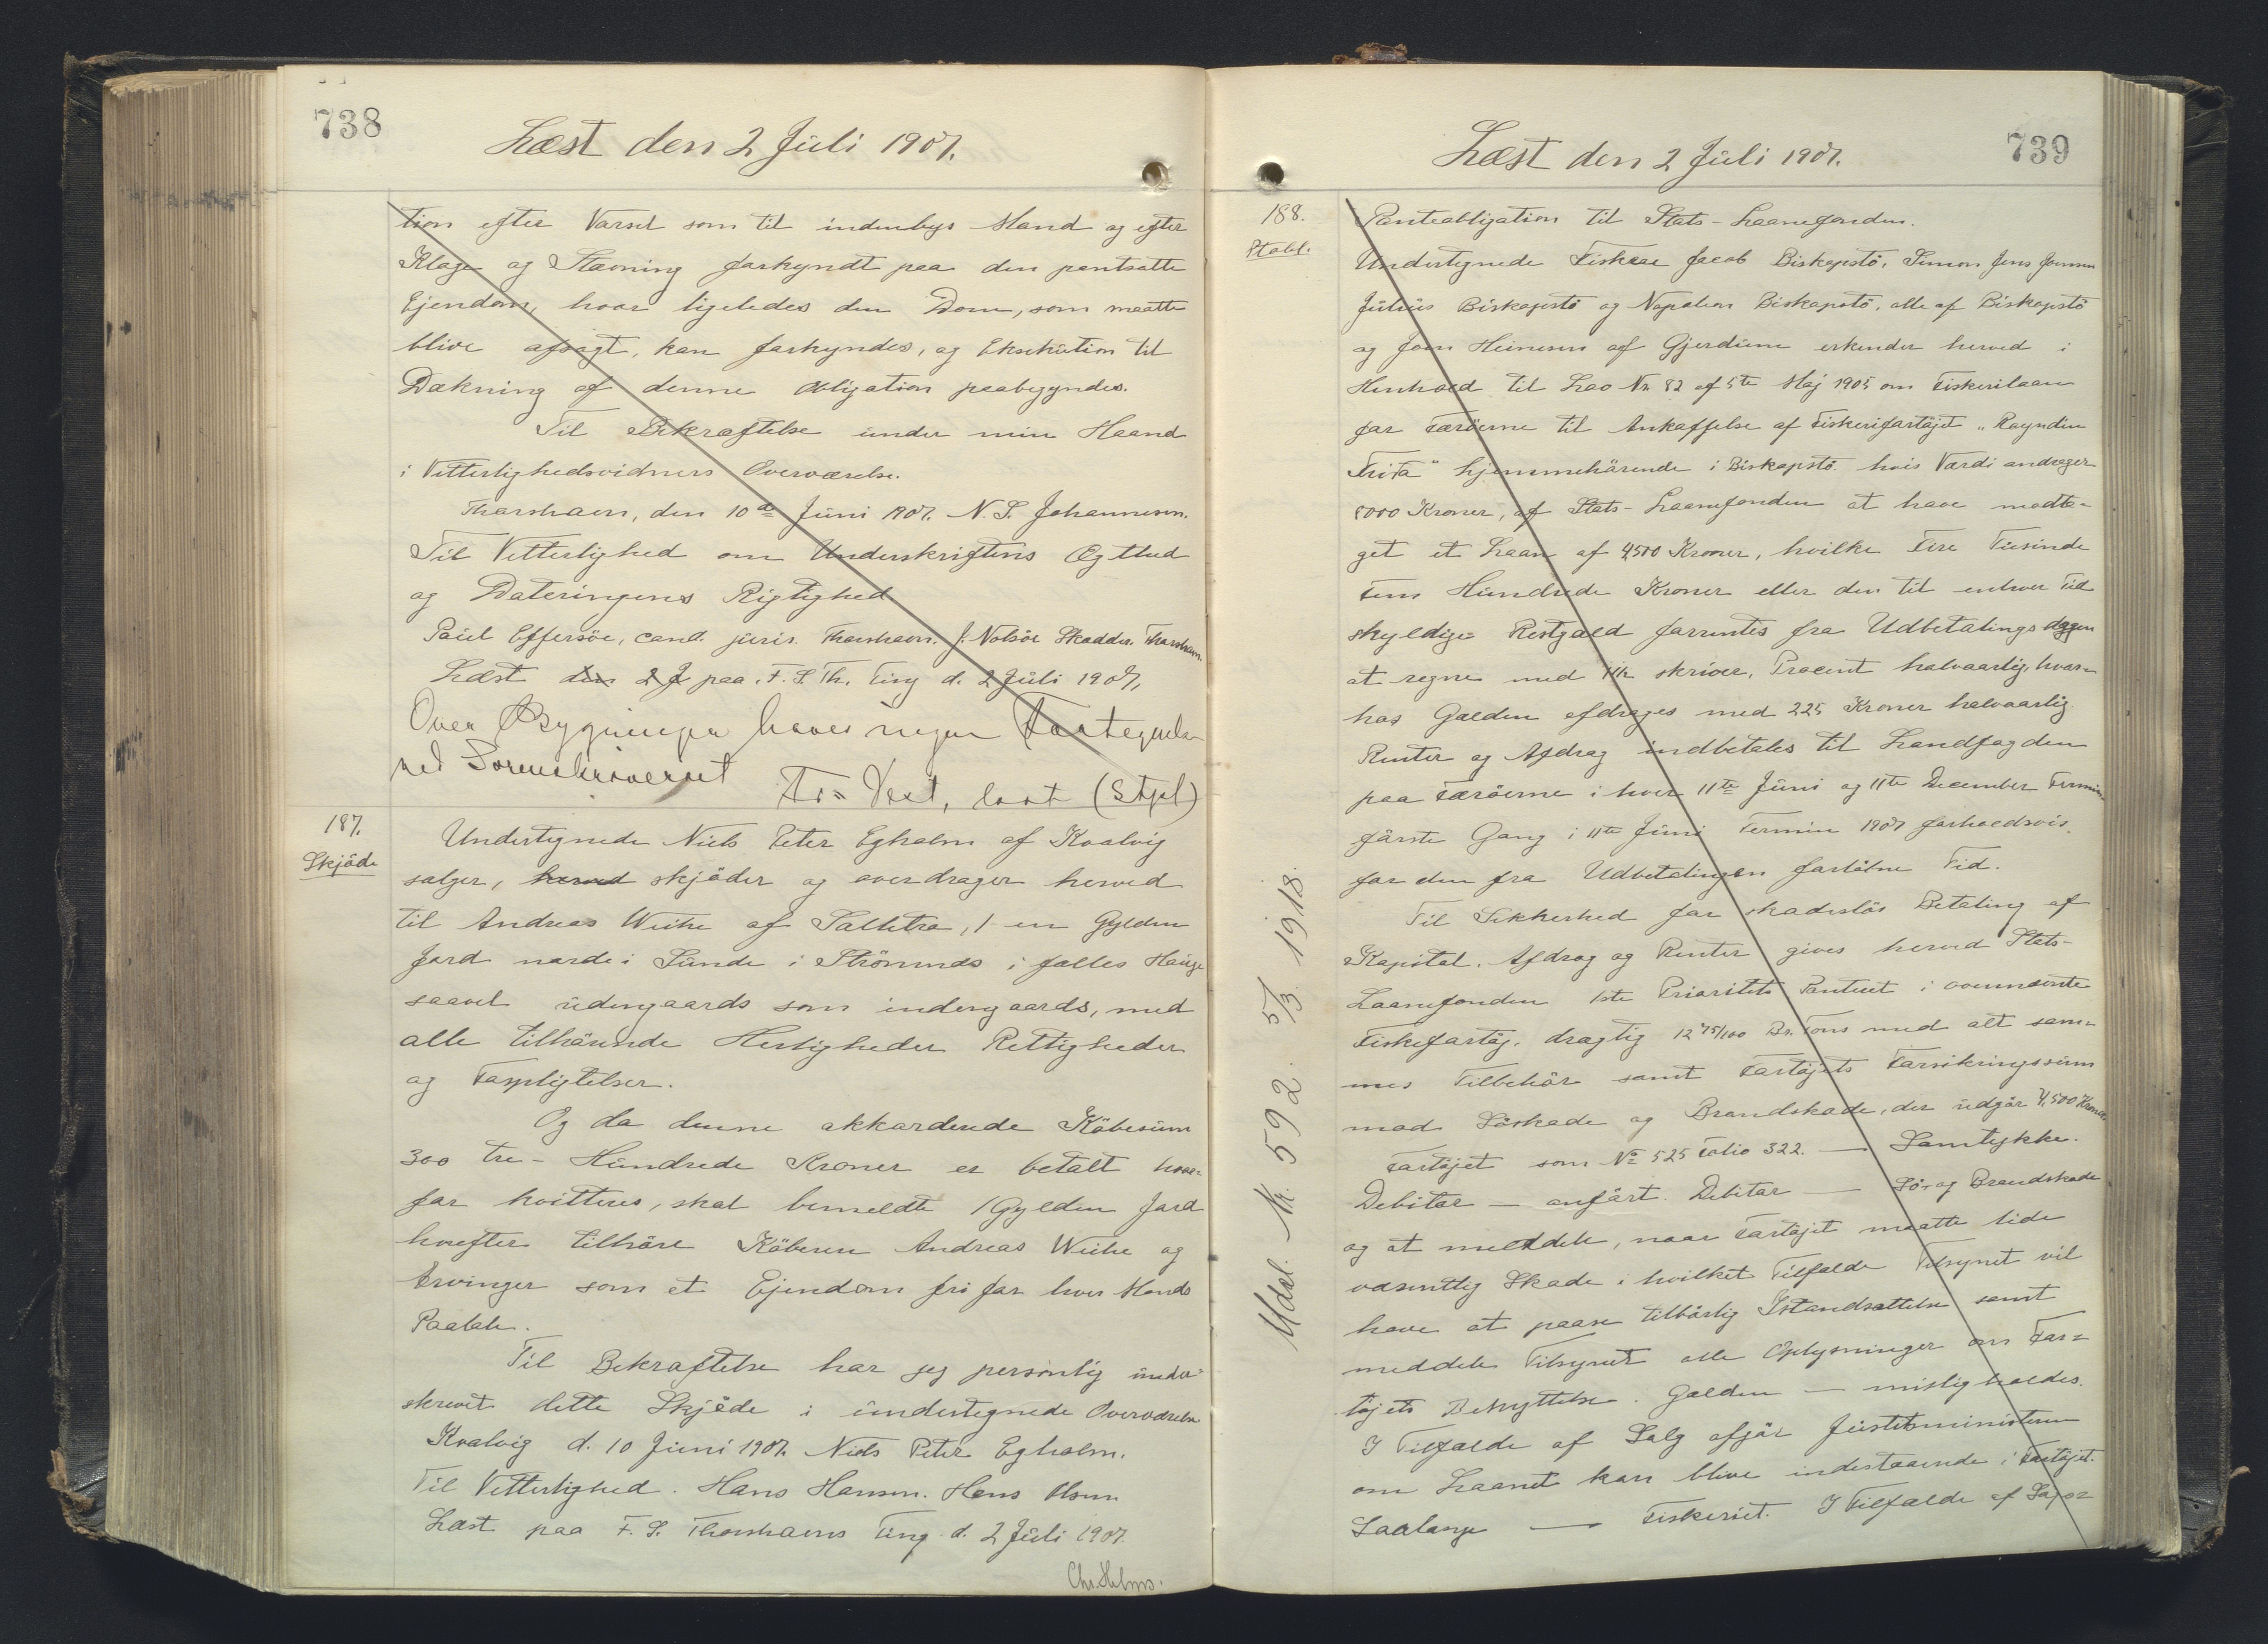 738
Læst den 2 Juli 1907.
tion efter Varsel som til indenbys Mand og efter
Klage og Stævning forkyndt paa den pantsatte
Ejendom, hvor ligeledes den Dom, som maatte
blive afsagt, kan forkyndes, og Eksekution til
Dækning af denne Obligation paabegyndes.
Til Bekræftelse under min Haand
i Vitterlighedsvidners Overværelse.
Thorshavn, den 10de Juni 1907. N. S. Johannesen.
Til Vitterlighed om Underskriftens Ægthed
og Dateringens Rigtighed
Poul Effersøe, cand. juris. Thorshavn. J. Nolsöe Thorshavn.
Læst den 2 J paa F. S. Th. Ting d. 2 Juli 1907,
Over Bygningen haves ingen Fortegnelse
ved Sorenskriveriet (Stpl)
187.
Skjöde
Undertegnede Niels Peter Egholm af Kvalvig
sælger, herved skjöder og overdrager herved
til Andreas Weihe af Saltetra, 1 en Gylden
Jord norde i Sunde i Strömnæs i fælles Hauge
saavel udengaards som indengaards, med
alle tilhörende Herligheder Rettigheder
og Forpligtelser.
Og da denne akkorderede Köbesum
300 tre - Hundrede Kroner er betalt hvor-
for kvitteres, skal bemeldte 1 Gylden Jord
herefter tilhöre Köberen Andreas Weihe og
Arvinger som et Ejendom fri for hver Mands
Paatale.
Til Bekræftelse har jeg personlig under-
skrevet dette Skjöde i undertegnede Overværelse
Kvalvig d. 10 Juni 1907. Niels Peter Egholm.
Til Vitterlighed. Hans Hansen. Hans Olsen
Læst paa F. S. Thorshavns Ting d. 2 Juli 1907.
Chr. Helms.
Læst den 2 Juli 1907.
739
188.
Ptobl.
Panteobligation til Stats-Laanefonden.
Undertegnede Fiskere Jacob Biskopstö, Simon Jens Joensen
Julius Biskopstö og Napoleon Biskopstö, alle af Biskopstö
og Joen Heinesen af Gjerdum erkender herved i
Henhold til Lov Nr. 82 af 5te Maj 1905 om Fiskerilaan
for Færöerne til Anskaffelse af Fiskerifartöjet "Royndin
Frita" hjemmehörende i Biskopstö. hvis Værdi andrager
8000 Kroner, af Stats-Laanefonden at have modta-
get et Laan af 4500 Kroner, hvilke Fire Tusinde
Fem Hundrede Kroner eller den til enhver Tid
skyldige Restgæld forrentes fra Udbetalingsdagen
at regne med 1½ skriver, Procent halvaarlig, hvor-
hos Gælden afdrages med 225 Kroner halvaarlig.
Renter og Afdrag indbetales til Landfogden
paa Færöerne i hver 11te Juni og 11te December Termin,
förste Gang i 11te Juni Termin 1907 forholdsvis,
for den fra Udbetalingen forlöbne Tid.
Til Sikkerhed for skadeslös Betaling af
Kapital, Afdrag og Renter gives herved Stats-
Laanefonden 1ste Prioritets Panteret i ovennævnte
Fiskefartöj, drægtig 12 75/100 Br. Tons med alt sam-
mes Tilbehör samt Fartöjets Forsikringssum
mod Söskade og Brandskade, der udgör 4,500 Kroner,
Fartöjet som No 525 Folio 322. — Samtykke.
Debitor — anfört. Debitor — Sö- og Brandskade
og at meddele, naar Fartöjet maatte lide
væsentlig Skade i hvilket Tilfælde Tilsynet vil
have at paase tilbörlig Istandsættelse samt
meddele Tilsynet alle Oplysninger om Far-
töjets Benyttelse. Gælden — misligholdes.
I Tilfælde af Salg afgör Justitsministeren
om Laanet kan blive indestaaende i Fartöjet.
Saalænge — Fiskeriet. I Tilfælde af Sags-
Udsl. Nr. 592. 5/3 1918.